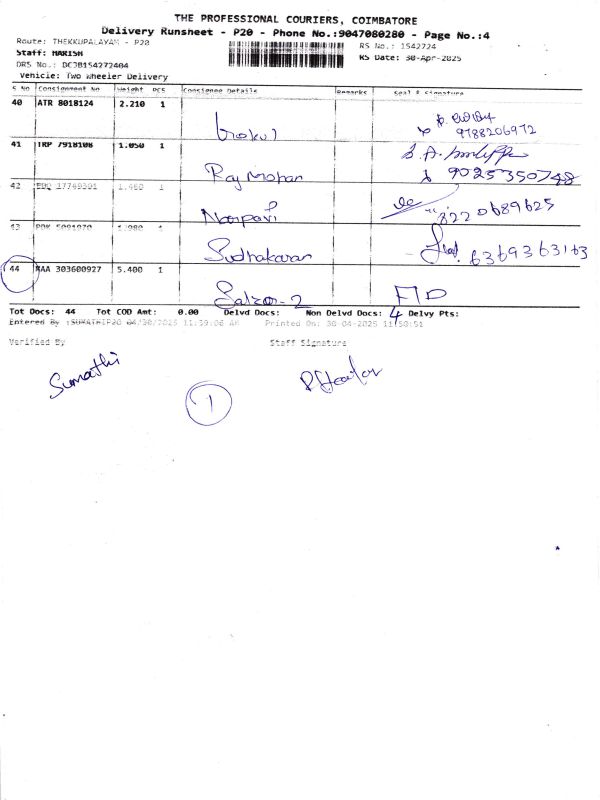 THE PROFESSIONAL COURIERS, COIMBATORE
Delivery Runsheet - P20 - Phone No.:9047080280 - Page No.:4
Route: THEKKUPALAYAM - P20
RS No.: 1542724
Staff: HARISH
RS Date: 30-Apr-2025
DRS No.: DCJB154272404
Vehicle: Two Wheeler Delivery
S No Consignment No Weight PCS Consignee Details Remarks Seal & Signature
40 ATR 8018124 2.210 1
Gokul
9788206972
41 TRP 7918108 1.050 1
Raj mohan
9025350748
42 17749391 1.460 1
8220689625
43 PDK 5091070 1
Sudhakaran
6369363163
44 KAA 303600927 5.400 1
FTD
Tot Docs: 44 Tot COD Amt: 0.00 Delvd Docs: Non Delvd Docs: 4 Delvy Pts:
Entered By :SUMATHIP20 04/30/2025 11:39:06 AM Printed On: 30-04-2025 11:50:51
Verified By Staff Signature
Sumathi
1